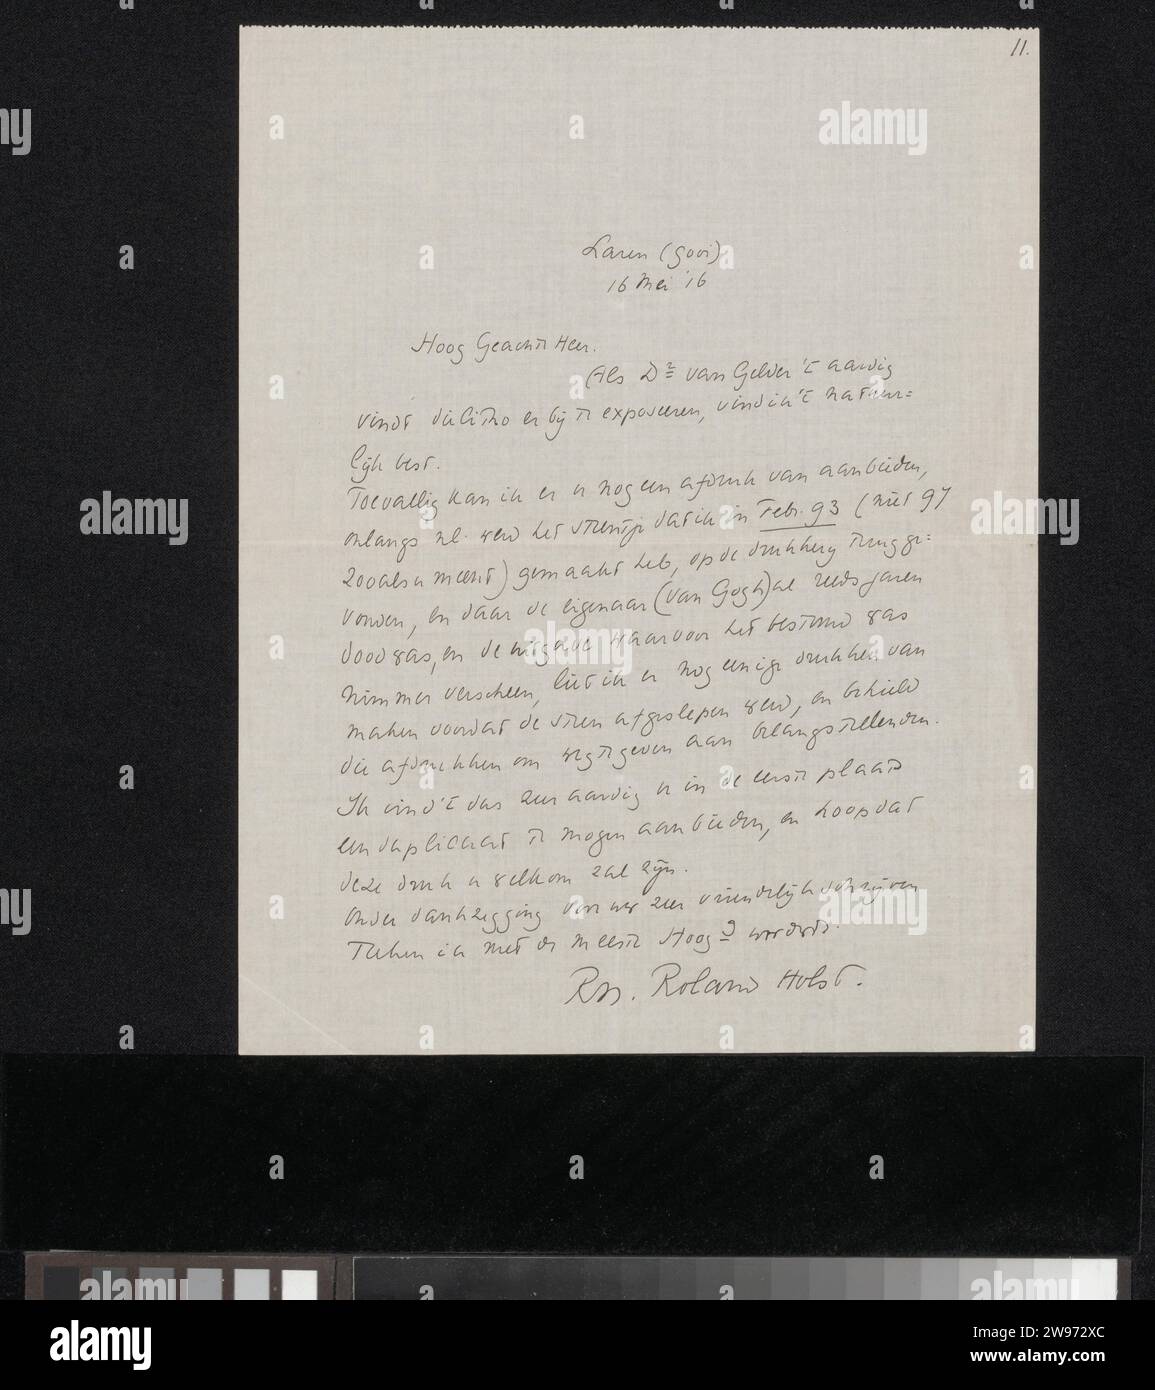 11.
Laren (Gooi)
16 Mei '16
Hoog Geachte Heer.
Als Dr van Gelder 't aardig
vindt die litho er bij te exposeeren, vind ik 't natuur=
lijk best.
Toevallig kan ik er u nog een afdruk van aanbieden,
onlangs nl. werd het steentje dat ik in Febr. 93 (niet 97
zooals u meent) gemaakt heb, op de drukkerij terugge=
vonden, en daar de eigenaar (van Gogh) al reeds jaren
dood was, en de uitgave waarvoor het bestemd was
nimmer verscheen, liet ik er nog eenige drukken van
maken voordat de steen afgeslepen werd, en behield
die afdrukken om weg te geven aan belangstellenden.
Ik vind 't dus zeer aardig u in de eerste plaats
een duplicaat te mogen aanbieden, en hoop dat
deze druk u welkom zal zijn.
Onder dankzegging voor uw zeer vriendelijk schrijven
teeken ik met de meeste Hoogd
RN. Roland Holst.
alamy
Image ID: 2W972XC
www.alamy.com